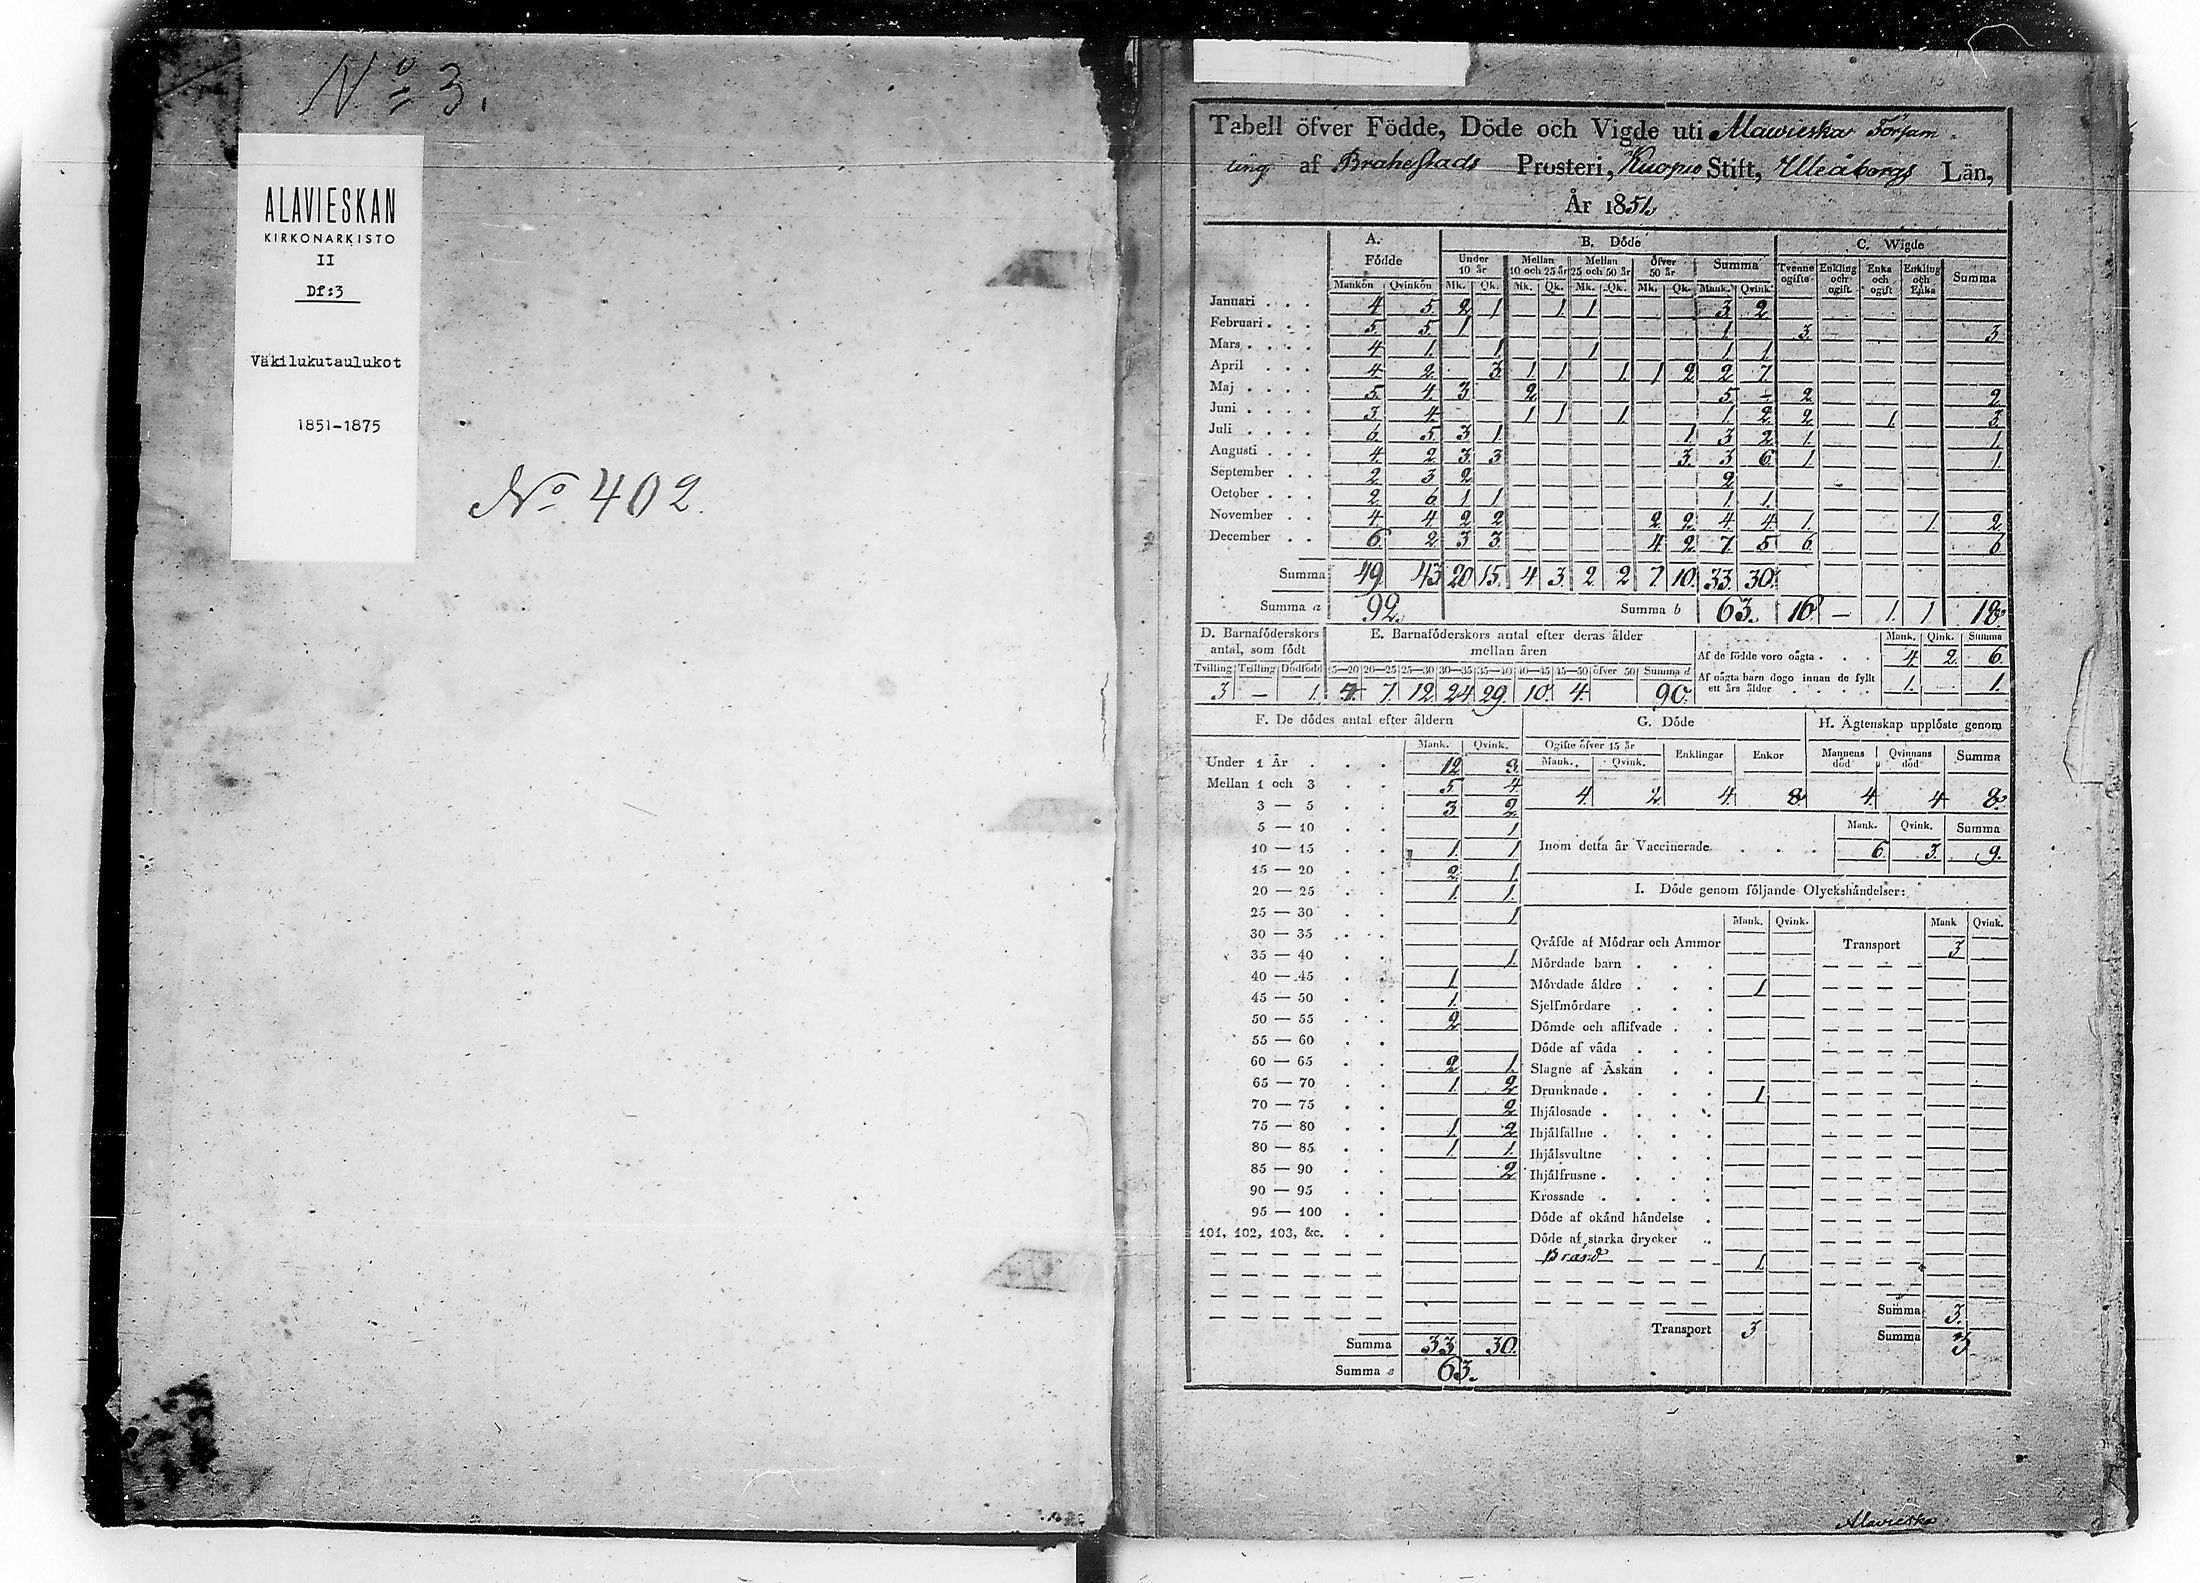 No 3.
ALAVIESKAN
KIRKONARKISTO
II
Df:3
Väkilukutaulukot
1851-1875
No 402.
Tabell öfver Födde, Döde och Vigde uti Alawieska Försam-
ling af Brahestads Prosteri, Kuopio Stift, Uleåborgs Län,
År 1851.
A. Födde B. Döde C. Wigde
Under 10 år Mellan 10 och 25 år Mellan 25 och 50 år Öfver 50 år Summa Tvenne ogifte Enkling och ogift. Enka och ogift Enkling och Enka Summa
Mankön Qvinkön Mk. Qk. Mk. Qk. Mk. Qk. Mk. Qk. Mank. Qvink.
Januari 4 5. 2 1 1. 1. 3 2
Februari 5. 5. 1 1 3. 3
Mars 4 1. 1 1 1 1.
April 4. 2. 3. 1 1 1. 1 2 2 7
Maj 5. 4. 3 2 5 - 2 2
Juni 3 4. 1 1 1. 1. 2. 2 1. 3.
Juli 6. 5. 3 1 1. 3 2 1. 1.
Augusti 4. 2. 3. 3 3. 3 6 1. 1.
September 2 3 2 2
October 2 6 1 1 1 1.
November 4. 4 2 2 2 2. 4. 4. 1. 1. 2
December 6. 2 3 3. 4 2 7. 5 6. 6.
Summa 49 43 20 15. 4 3. 2 2 7 10. 33. 30.
Summa a 92. Summa b 63. 16. — 1. 1 18.
D. Barnaföderskors antal, som födt
Tvilling Trilling Dödfödd
3 — 1.
E. Barnaföderskors antal efter deras ålder mellan åren
15—20 20—25 25—30 30—35 35—40 40—45 45—50 öfver 50 Summa d
4. 7. 12. 24 29. 10. 4. 90.
Mank. Qink. Summa
Af de födde voro oägta 4. 2. 6.
Af oägta barn dogo innan de fyllt ett års ålder 1. 1.
F. De dödes antal efter åldern
Mank. Qvink.
Under 1 År 12 9.
Mellan 1 och 3 5 4
3 — 5 3 2
5 — 10 1
10 — 15 1. 1
15 — 20 2. 1.
20 — 25 1. 1.
25 — 30 1
30 — 35
35 — 40 1.
40 — 45 1
45 — 50 1.
50 — 55 2
55 — 60
60 — 65 2 1.
65 — 70 1. 2
70 — 75 2
75 — 80 1. 2
80 — 85 1 1.
85 — 90 2
90 — 95
95 — 100
101, 102, 103, &c.
Summa 33 30.
Summa e 63.
G. Döde
Ogifte öfver 15 år Enklingar Enkor
Mank. Qvink.
4. 2 4. 8
H. Ägtenskap upplöste genom
Mannens död Qvinnans död Summa
4. 4 8.
Mank. Qvink. Summa
Inom detta år Vaccinerade 6 3. 9.
I. Döde genom följande Olyckshändelser:
Mank. Qvink. Mank. Qvink.
Qväfde af Mödrar och Ammor Transport 3
Mördade barn
Mördade äldre 1
Sjelfmördare
Dömde och aflifvade
Döde af våda
Slagne af Åskan
Drunknade 1
Ihjälosade
Ihjälfallne
Ihjälsvultne
Ihjälfrusne
Krossade
Döde af okänd händelse
Döde af starka drycker
Bränd 1
Summa 3.
Transport 3 Summa 3
Alavieska